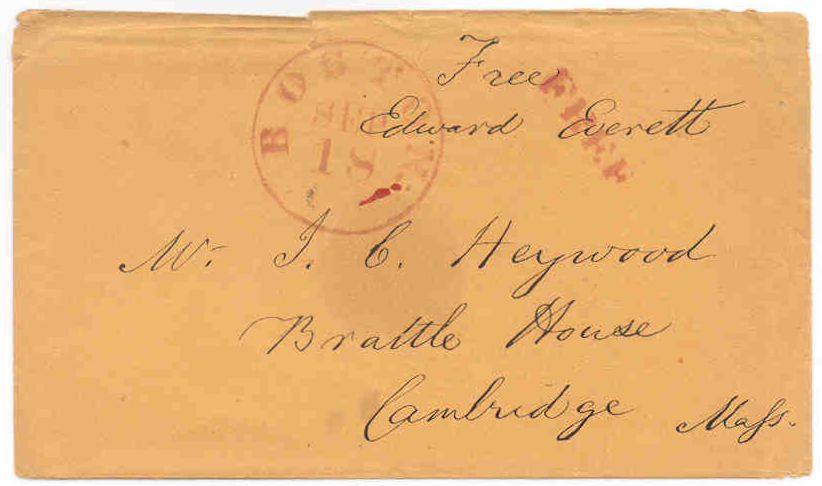 Free
Edward Everett
FREE
BOSTON
SEP
18
Mr. J. C. Heywood
Brattle House
Cambridge Mass.